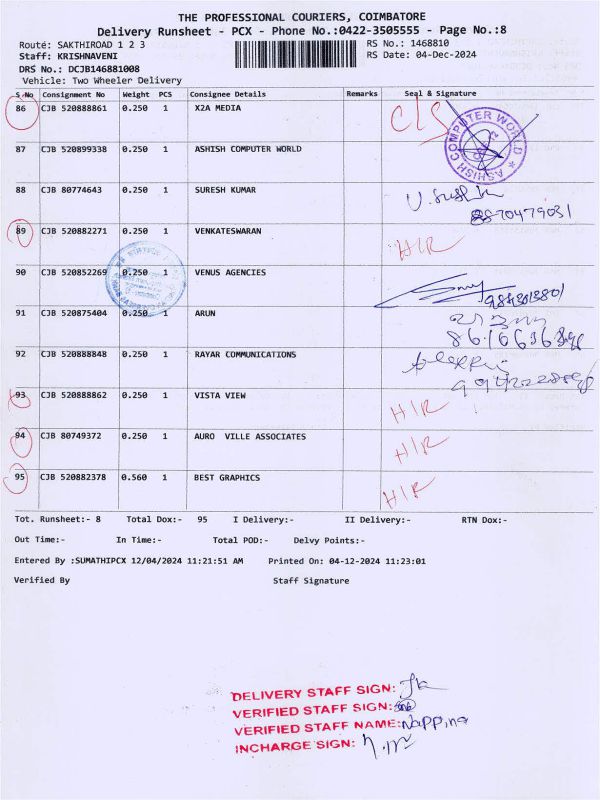 THE PROFESSIONAL COURIERS, COIMBATORE
Delivery Runsheet - PCX - Phone No.:0422-3505555 - Page No.:8
Route: SAKTHIROAD 1 2 3 RS No.: 1468810
Staff: KRISHNAVENI RS Date: 04-Dec-2024
DRS No.: DCJB146881008
Vehicle: Two Wheeler Delivery
S.No Consignment No Weight PCS Consignee Details Remarks Seal & Signature
86 CJB 520888861 0.250 1 X2A MEDIA C/S
ASHISH COMPUTER WORLD
87 CJB 520899338 0.250 1 ASHISH COMPUTER WORLD
88 CJB 80774643 0.250 1 SURESH KUMAR
8870479031
89 CJB 520882271 0.250 1 VENKATESWARAN H/R
90 CJB 520852269 0.250 1 VENUS AGENCIES
91 CJB 520875404 0.250 1 ARUN
92 CJB 520888848 0.250 1 RAYAR COMMUNICATIONS
93 CJB 520888862 0.250 1 VISTA VIEW H/R
94 CJB 80749372 0.250 1 AURO VILLE ASSOCIATES H/R
95 CJB 520882378 0.560 1 BEST GRAPHICS H/R
Tot. Runsheet:- 8 Total Dox:- 95 I Delivery:- II Delivery:- RTN Dox:-
Out Time:- In Time:- Total POD:- Delvy Points:-
Entered By :SUMATHIPCX 12/04/2024 11:21:51 AM Printed On: 04-12-2024 11:23:01
Verified By Staff Signature
DELIVERY STAFF SIGN:
VERIFIED STAFF SIGN:
VERIFIED STAFF NAME:
INCHARGE SIGN: